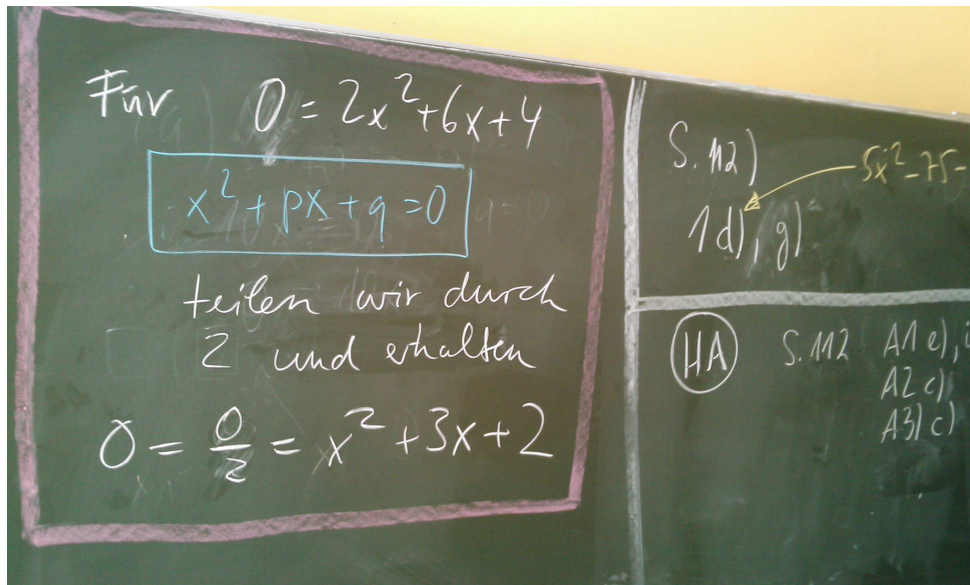 Für 0 = 2x² + 6x + 4
x² + px + q = 0
teilen wir durch
2 und erhalten
0 = 0/2 = x² + 3x + 2
S. 112)
1 d), g)
5x² - 75 -
HA S. 112 A1 e),
A2 c),
A3) c)